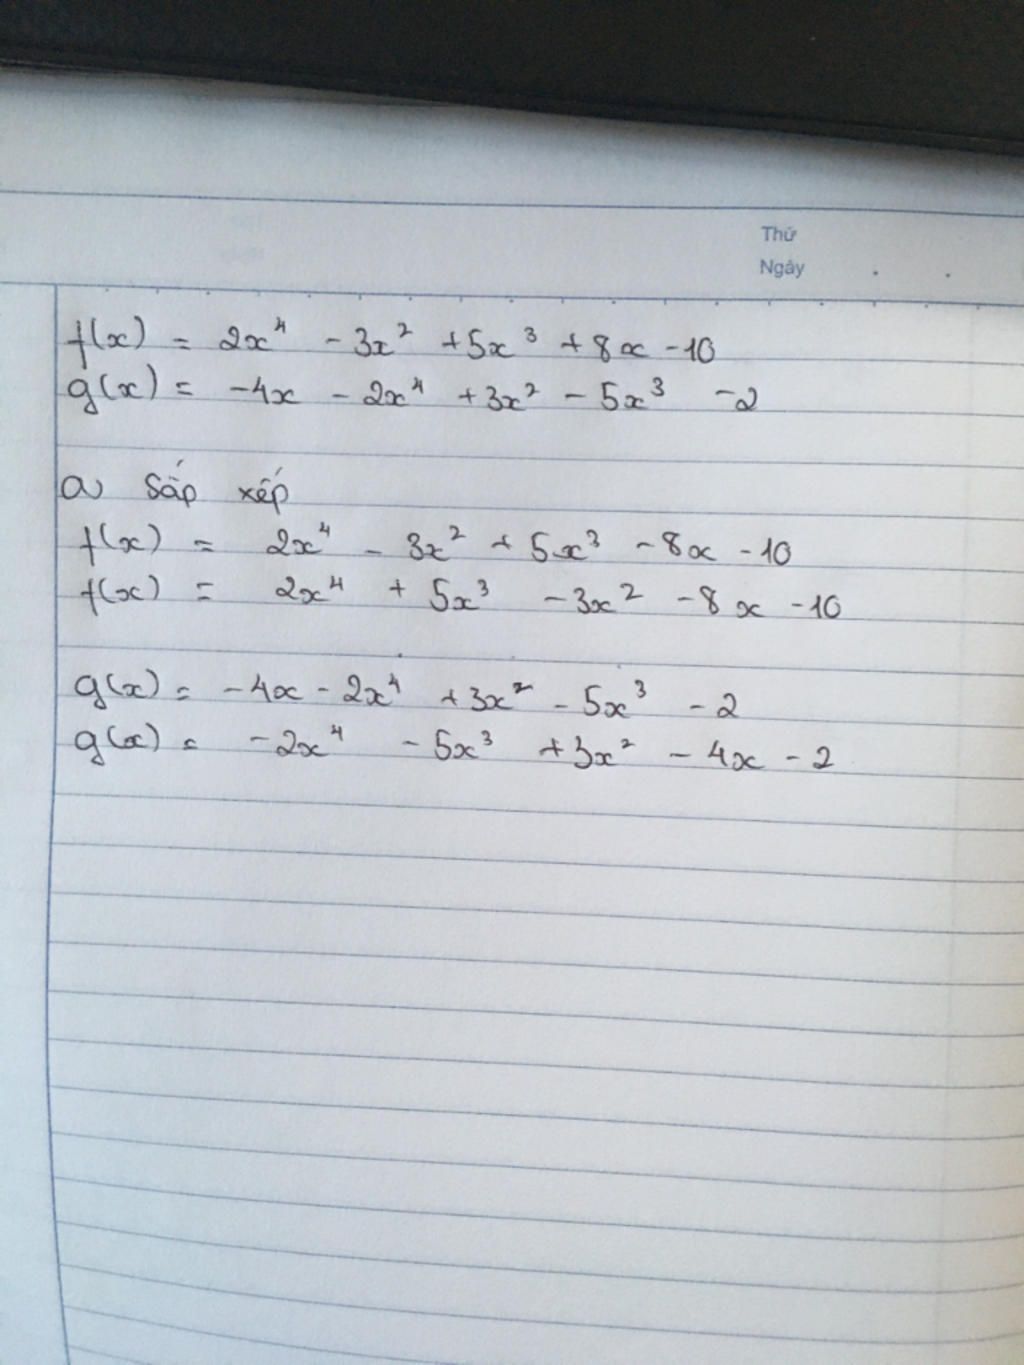 Thứ
Ngày . .
f(x) = 2x⁴ - 3x² + 5x³ + 8x - 10
g(x) = -4x - 2x⁴ + 3x² - 5x³ - 2
a) Sắp xếp
f(x) = 2x⁴ - 3x² + 5x³ - 8x - 10
f(x) = 2x⁴ + 5x³ - 3x² - 8x - 10
g(x) = -4x - 2x⁴ + 3x² - 5x³ - 2
g(x) = -2x⁴ - 5x³ + 3x² - 4x - 2